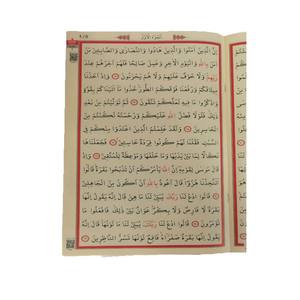 الجزء الأول
إِنَّ الَّذِينَ آمَنُوا وَالَّذِينَ هَادُوا وَالنَّصَارَى وَالصَّابِئِينَ مَنْ
آمَنَ بِاللَّهِ وَالْيَوْمِ الْآخِرِ وَعَمِلَ صَالِحًا فَلَهُمْ أَجْرُهُمْ عِنْدَ
رَبِّهِمْ وَلَا خَوْفٌ عَلَيْهِمْ وَلَا هُمْ يَحْزَنُونَ وَإِذْ أَخَذْنَا
مِيثَاقَكُمْ وَرَفَعْنَا فَوْقَكُمُ الطُّورَ خُذُوا مَا آتَيْنَاكُمْ بِقُوَّةٍ
وَاذْكُرُوا مَا فِيهِ لَعَلَّكُمْ تَتَّقُونَ ثُمَّ تَوَلَّيْتُمْ مِنْ بَعْدِ
ذَلِكَ فَلَوْلَا فَضْلُ اللَّهِ عَلَيْكُمْ وَرَحْمَتُهُ لَكُنْتُمْ مِنَ
الْخَاسِرِينَ وَلَقَدْ عَلِمْتُمُ الَّذِينَ اعْتَدَوْا مِنْكُمْ فِي
السَّبْتِ فَقُلْنَا لَهُمْ كُونُوا قِرَدَةً خَاسِئِينَ فَجَعَلْنَاهَا
نَكَالًا لِمَا بَيْنَ يَدَيْهَا وَمَا خَلْفَهَا وَمَوْعِظَةً لِلْمُتَّقِينَ وَإِذْ
قَالَ مُوسَى لِقَوْمِهِ إِنَّ اللَّهَ يَأْمُرُكُمْ أَنْ تَذْبَحُوا بَقَرَةً قَالُوا
أَتَتَّخِذُنَا هُزُوًا قَالَ أَعُوذُ بِاللَّهِ أَنْ أَكُونَ مِنَ الْجَاهِلِينَ
قَالُوا ادْعُ لَنَا رَبَّكَ يُبَيِّنْ لَنَا مَا هِيَ قَالَ إِنَّهُ يَقُولُ إِنَّهَا
بَقَرَةٌ لَا فَارِضٌ وَلَا بِكْرٌ عَوَانٌ بَيْنَ ذَلِكَ فَافْعَلُوا مَا
تُؤْمَرُونَ قَالُوا ادْعُ لَنَا رَبَّكَ يُبَيِّنْ لَنَا مَا لَوْنُهَا قَالَ إِنَّهُ
يَقُولُ إِنَّهَا بَقَرَةٌ صَفْرَاءُ فَاقِعٌ لَوْنُهَا تَسُرُّ النَّاظِرِينَ